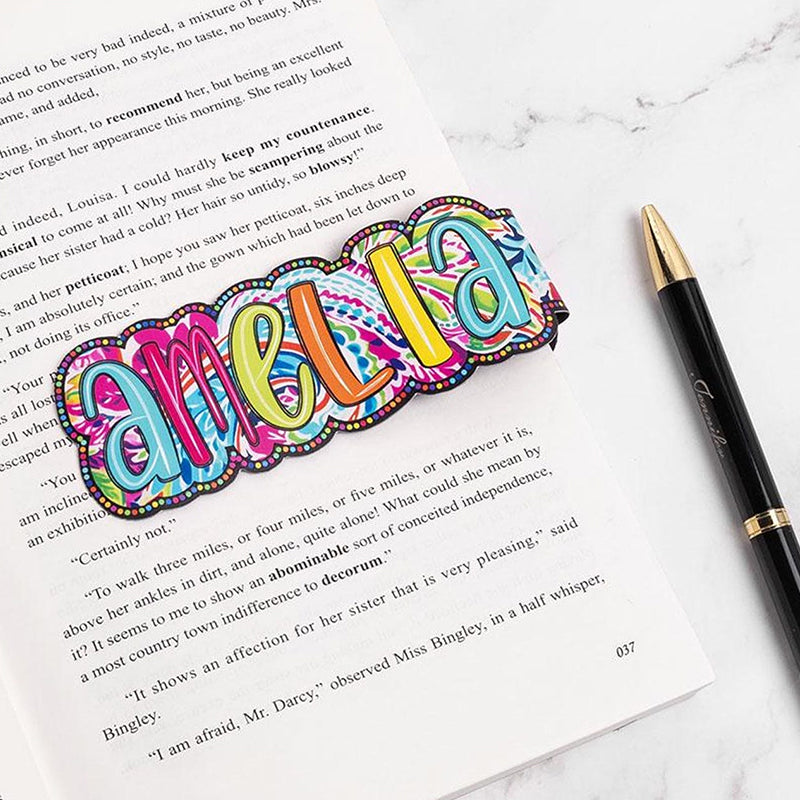 nced to be very bad indeed, a mixture of p
ad no conversation, no style, no taste, no beauty. Mrs.
ame, and added,
hing, in short, to recommend her, but being an excellent
ever forget her appearance this morning. She really looked
d indeed, Louisa. I could hardly keep my countenance.
nsical to come at all! Why must she be scampering about the
cause her sister had a cold? Her hair so untidy, so blowsy!”
s, and her petticoat; I hope you saw her petticoat, six inches deep
I am absolutely certain; and the gown which had been let down to
, not doing its office.”
“Your
s all lost
ell when
escaped my
amelia
“You
am incline
an exhibition
“Certainly not.”
“To walk three miles, or four miles, or five miles, or whatever it is,
above her ankles in dirt, and alone, quite alone! What could she mean by
it? It seems to me to show an abominable sort of conceited independence,
a most country town indifference to decorum.”
“It shows an affection for her sister that is very pleasing,” said
Bingley.
“I am afraid, Mr. Darcy,” observed Miss Bingley, in a half whisper,
037
Jennifer